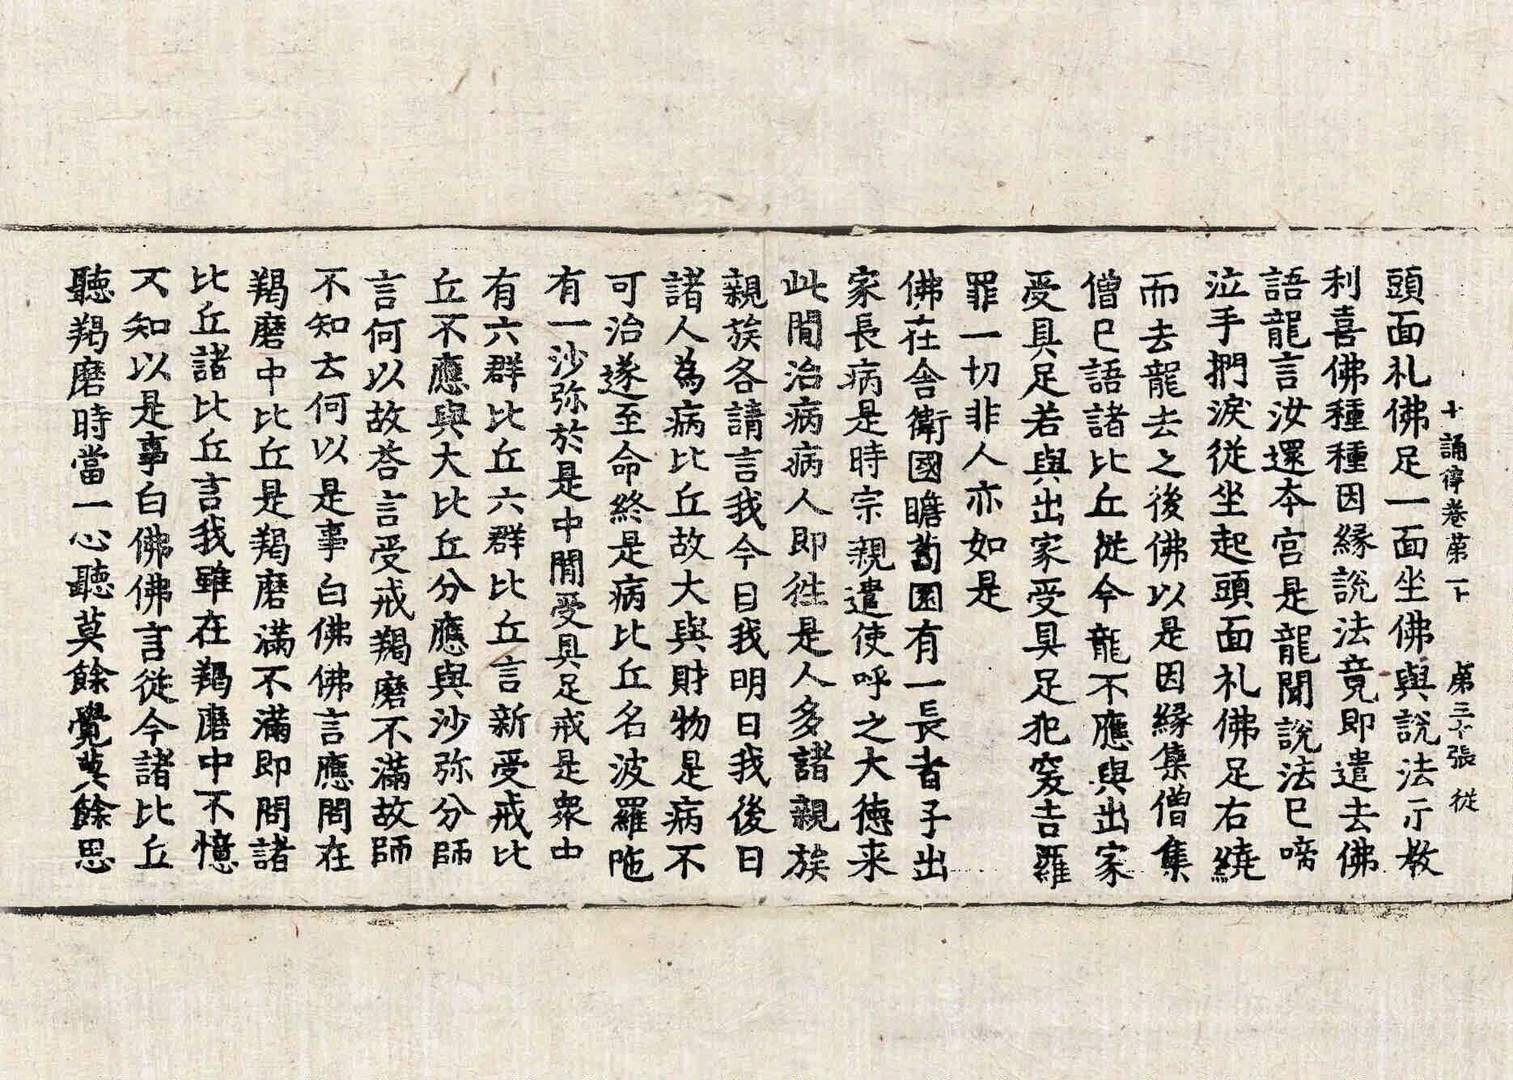 十誦律卷第一下 第三十張 從
頭面礼佛足一面坐佛與說法示教
利喜佛種種因緣說法竟即遣去佛
語龍言汝還本宮是龍聞說法已啼
泣手捫淚從坐起頭面礼佛足右繞
而去龍去之後佛以是因緣集僧集
僧已語諸比丘從今龍不應與出家
受具足若與出家受具足犯突吉羅
罪一切非人亦如是
佛在舍衛國瞻蔔園有一長者子出
家長病是時宗親遣使呼之大德来
此間治病病人即往是人多諸親族
親族各請言我今日我明日我後日
諸人為病比丘故大與財物是病不
可治遂至命終是病比丘名波羅陁
有一沙弥於是中間受具足戒是衆中
有六群比丘六群比丘言新受戒比
丘不應與大比丘分應與沙弥分師
言何以故荅言受戒羯磨不滿故師
不知云何以是事白佛佛言應問在
羯磨中比丘是羯磨滿不滿即問諸
比丘諸比丘言我雖在羯磨中不憶
不知以是事白佛佛言從今諸比丘
聽羯磨時當一心聽莫餘覺莫餘思